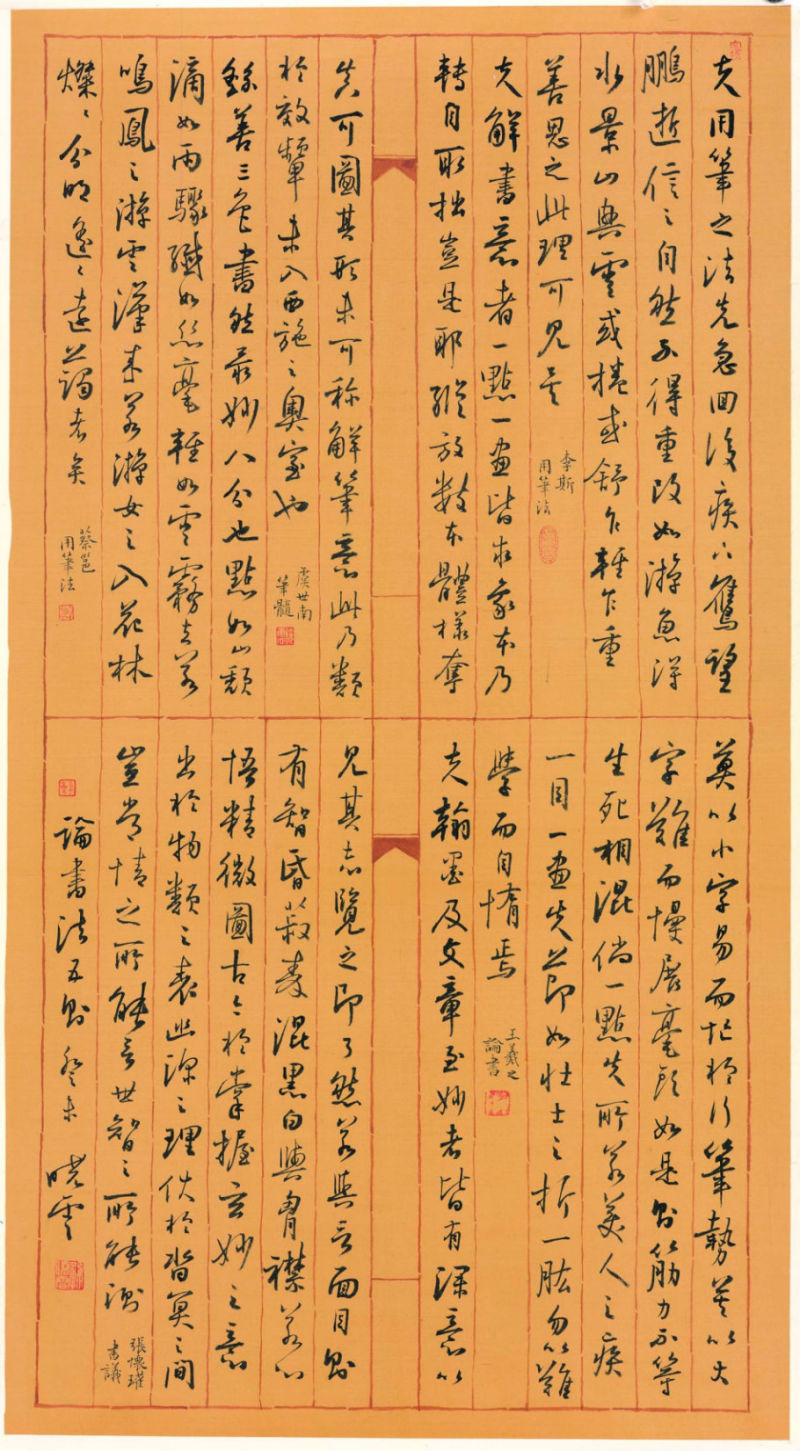 夫用筆之法先急回後疾下鷹望
鵬逝信之自然不得重改如游魚得
水景山興雲或捲或舒乍輕乍重
善思之此理可見矣
李斯
用筆法
夫解書意者一點一畫皆求象本乃
轉自取拙豈是耶縱放數本體樣奪
真可圖其形未可称解筆意此乃類
於效顰未入西施之奧室也
虞世南
筆髓
繇善三色書然最妙八分也點如山頹
滴如雨驟纖如絲毫輕如雲霧去若
鳴鳳之游雲漢来若游女之入花林
燦燦分明遙遙遠者矣
蔡邕
用筆法
莫以小字易而忙於行筆勢莫以大
字難而慢展毫頭如是則筋力不等
生死相混倘一點失所若美人之疾
一目一畫失節如壯士之折一肱勿以難
學而自惰焉
王羲之
論書
夫翰墨及文章至妙者皆有深意以
見其志覽之即了然若與言面目則
有智昏菽麥混黑白與胷襟若心
悟精微圖古今於掌握玄妙之意
出於物類之表幽深之理伏於杳冥之間
豈常情之所能言世智之所能測
張懷瓘
書議
論書法五則癸未曉雲